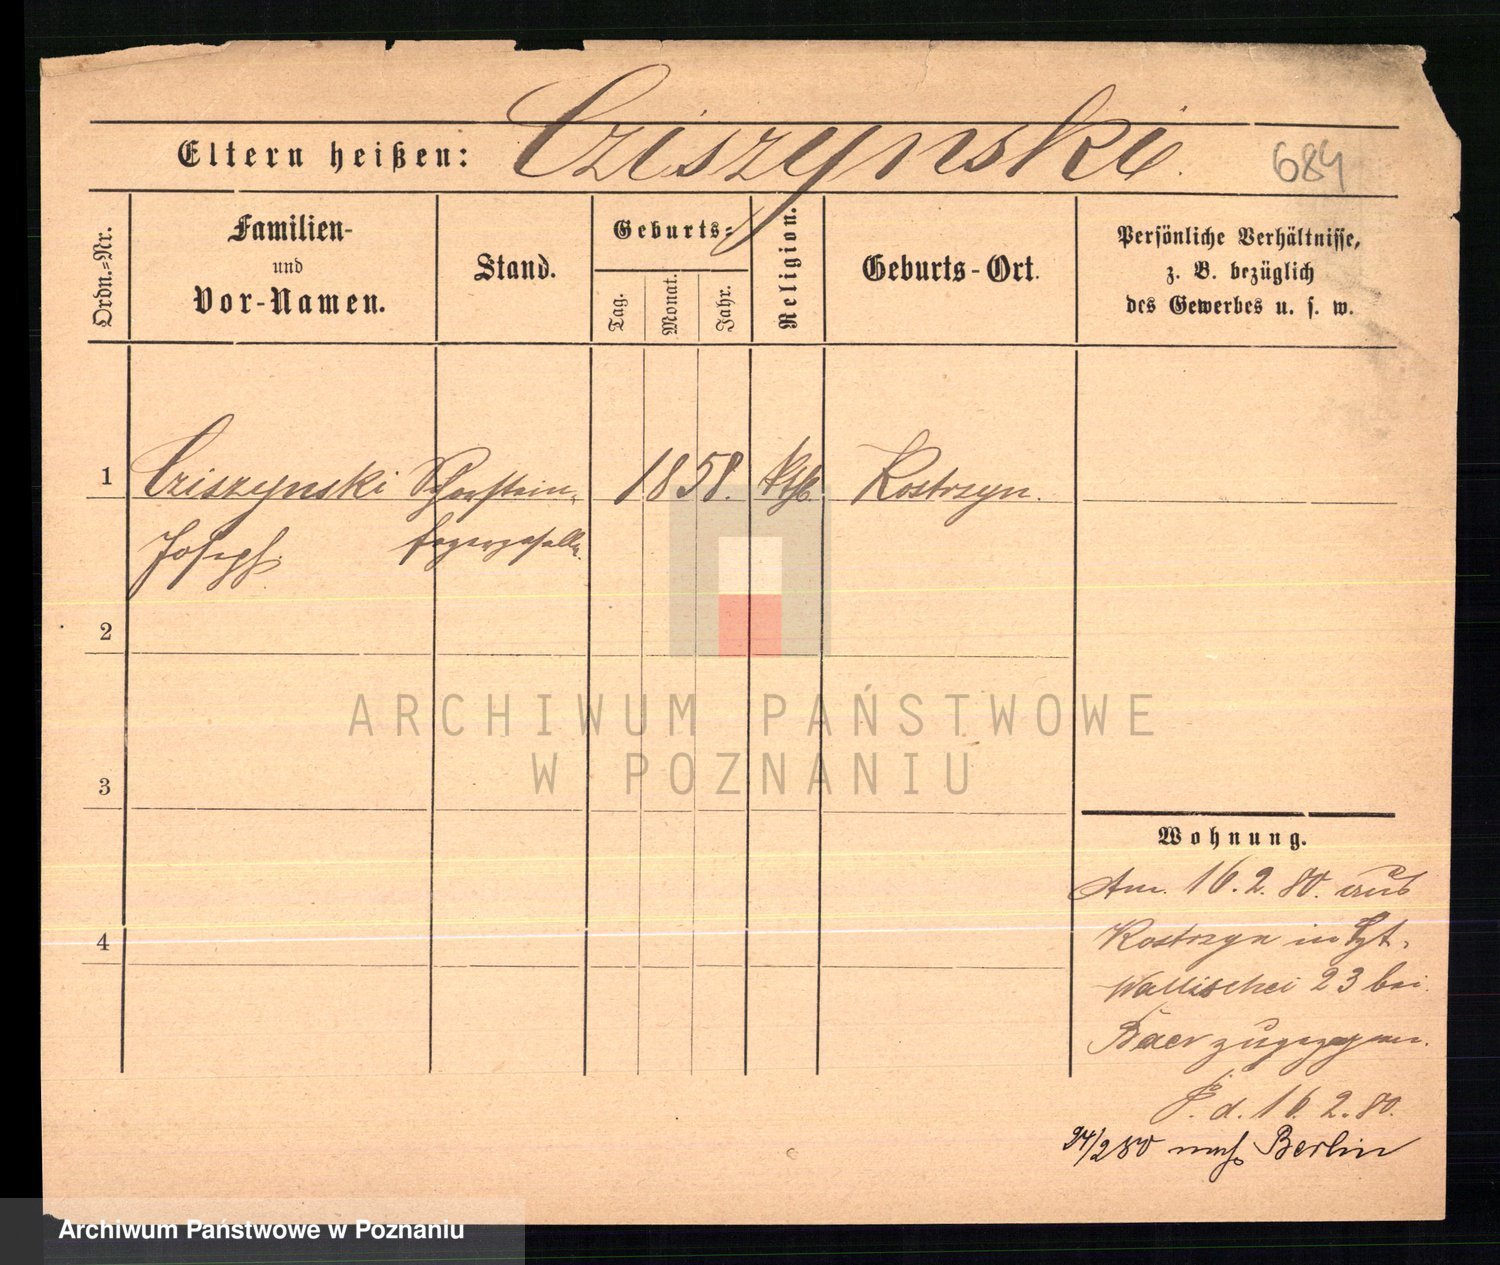 Cziszynski.
684
Eltern heißen:
Ordn.-Nr.
Familien-
und
Vor-Namen.
Stand.
Geburts-
Tag.
Monat.
Jahr.
Religion.
Geburts-Ort.
Persönliche Verhältnisse,
z. B. bezüglich
des Gewerbes u. s. w.
1
Cziszynski Schornstein-
1858. kth. Kostrzyn.
Joseph. fegergeselle.
2
3
4
Wohnung.
Am. 16. 2. 80. aus
Kostrzyn in
Wallischei 23 bei
Baer zugezogen.
P. d. 16. 2. 80.
24/2 80 nach Berlin
ARCHIWUM PAŃSTWOWE
W POZNANIU
Archiwum Państwowe w Poznaniu